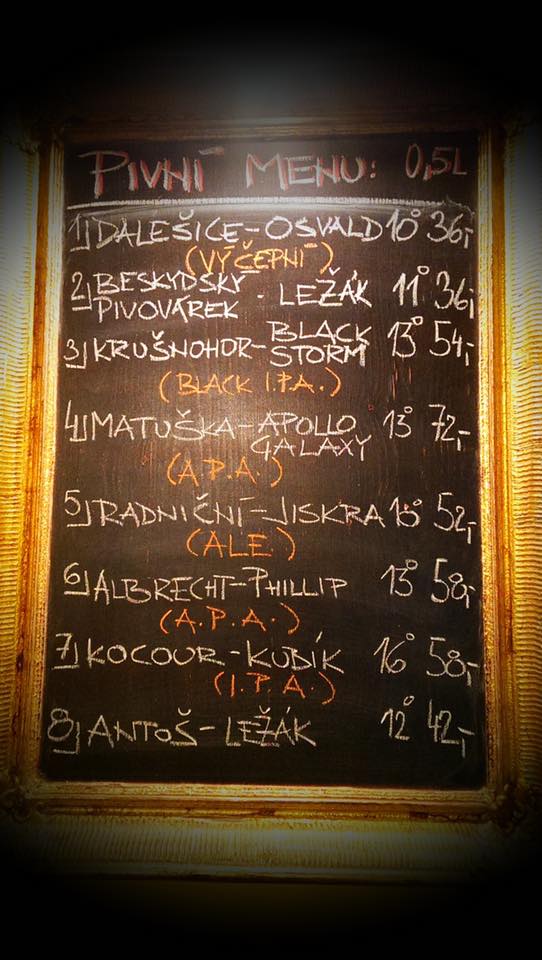 PIVNÍ MENU: 0,5L
1) DALEŠICE-OSVALD 10° 36,-
(VÝČEPNÍ)
2) BESKYDSKÝ PIVOVÁREK - LEŽÁK 11° 36,-
3) KRUŠNOHOR- BLACK STORM 13° 54,-
(BLACK I.P.A.)
4) MATUŠKA- APOLLO GALAXY 13° 72,-
(A.P.A.)
5) RADNIČNÍ-JISKRA 52,-
(ALE)
6) ALBRECHT-PHILLIP 13° 58,-
(A.P.A.)
7) KOCOUR-KUBÍK 16° 58,-
(I.P.A.)
8) ANTOŠ- LEŽÁK 12° 42,-